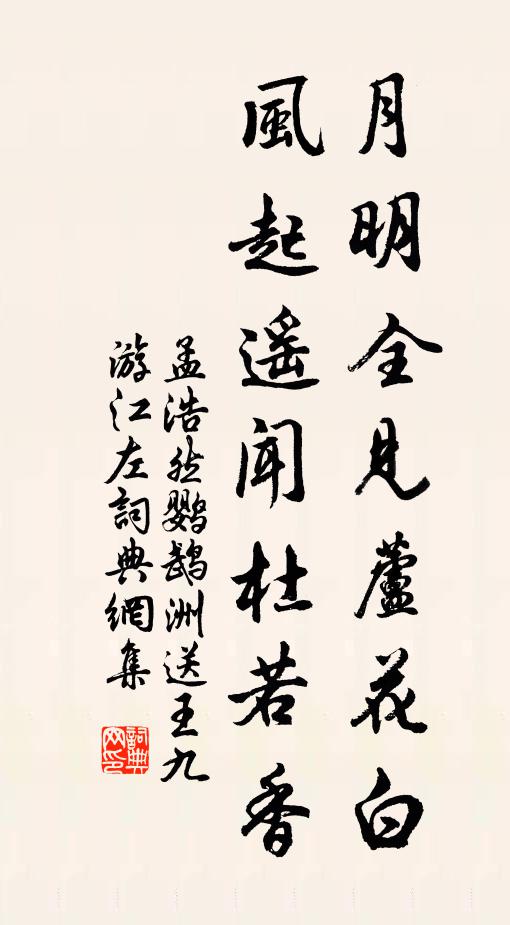 月明全見蘆花白
風起遥聞杜若香
孟浩然鹦鹉洲送王九
游江左詞典網集
詞典網印